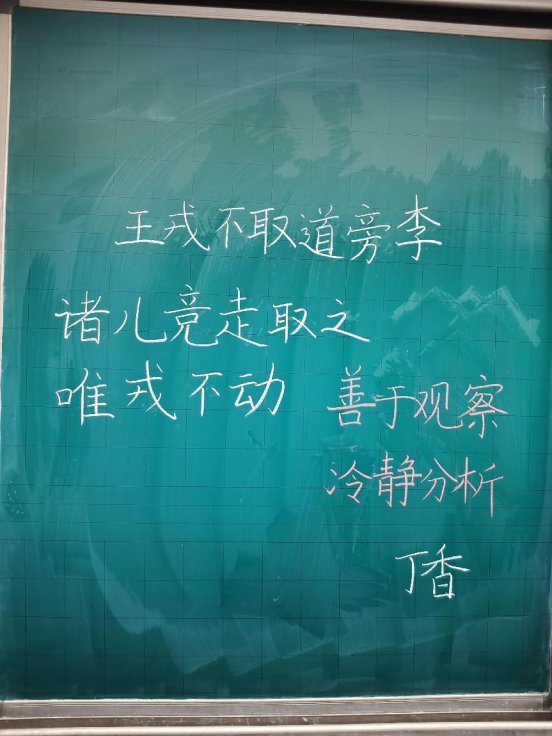 王戎不取道旁李
诸儿竞走取之
唯戎不动
善于观察
冷静分析
丁香